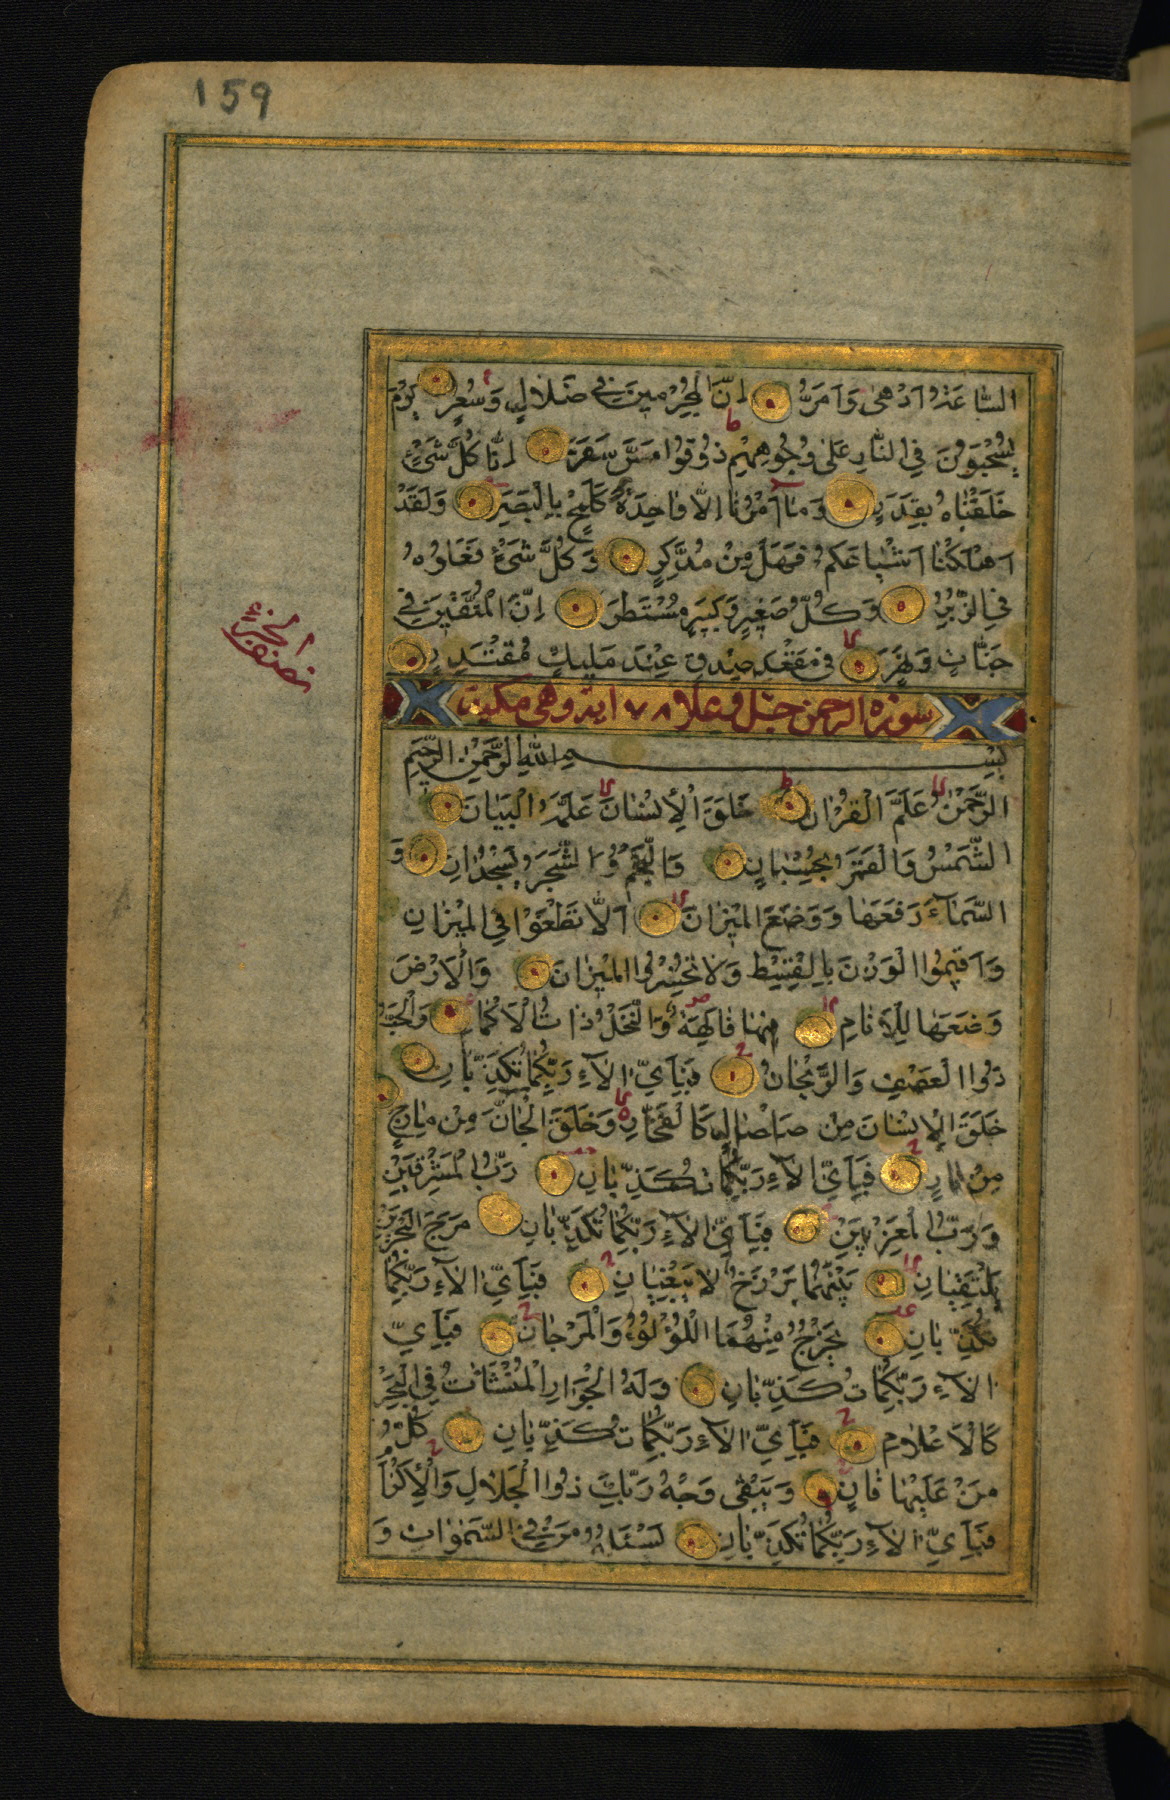 159
الساعة ادهى وامر ان المجرمين في ضلال وسعر يوم
يسحبون في النار على وجوههم ذوقوا مس سقر انا كل شيء
خلقناه بقدر وما امرنا الا واحدة كلمح بالبصر ولقد
اهلكنا اشياعكم فهل من مدكر وكل شيء فعلوه
في الزبر وكل صغير وكبير مستطر ان المتقين في
جنات ونهر في مقعد صدق عند مليك مقتدر
نصف الحزب
سورة الرحمن جل وعلا ٧٨ اية وهى مكية
بسم الله الرحمن الرحيم
الرحمن علم القران خلق الانسان علمه البيان
الشمس والقمر بحسبان والنجم والشجر يسجدان و
السماء رفعها ووضع الميزان الا تطغوا في الميزان
واقيموا الوزن بالقسط ولا تخسروا الميزان والارض
وضعها للانام فيها فاكهة والنخل ذات الاكمام والحب
ذوا العصف والريحان فباي الاء ربكما تكذبان
خلق الانسان من صلصال كالفخار وخلق الجان من مارج
من نار فباي الاء ربكما تكذبان رب المشرقين
ورب المغربين فباي الاء ربكما تكذبان مرج البحرين
يلتقيان بينهما برزخ لا يبغيان فباي الاء ربكما
تكذبان يخرج منهما اللؤلؤ والمرجان فباي
الاء ربكما تكذبان وله الجوار المنشات في البحر
كالاعلام فباي الاء ربكما تكذبان كل
من عليها فان ويبقى وجه ربك ذوا الجلال والاكرام
فباي الاء ربكما تكذبان يسئله من في السموات و